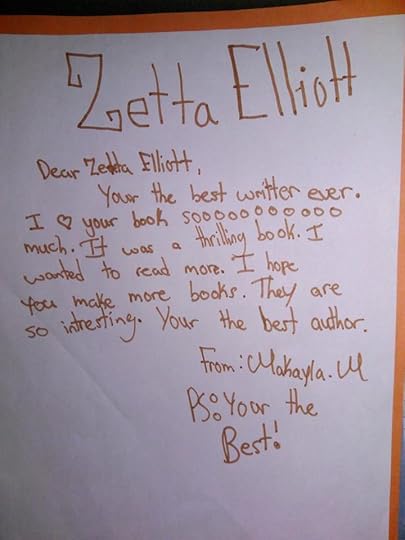 Zetta Elliott
Dear Zetta Elliott,
Your the best writter ever.
I ♡ your book soooooooooooo
much. It was a thrilling book. I
wanted to read more. I hope
you make more books. They are
so intresting. Your the best author.
From: Makayla. M
PS: Your the
Best!